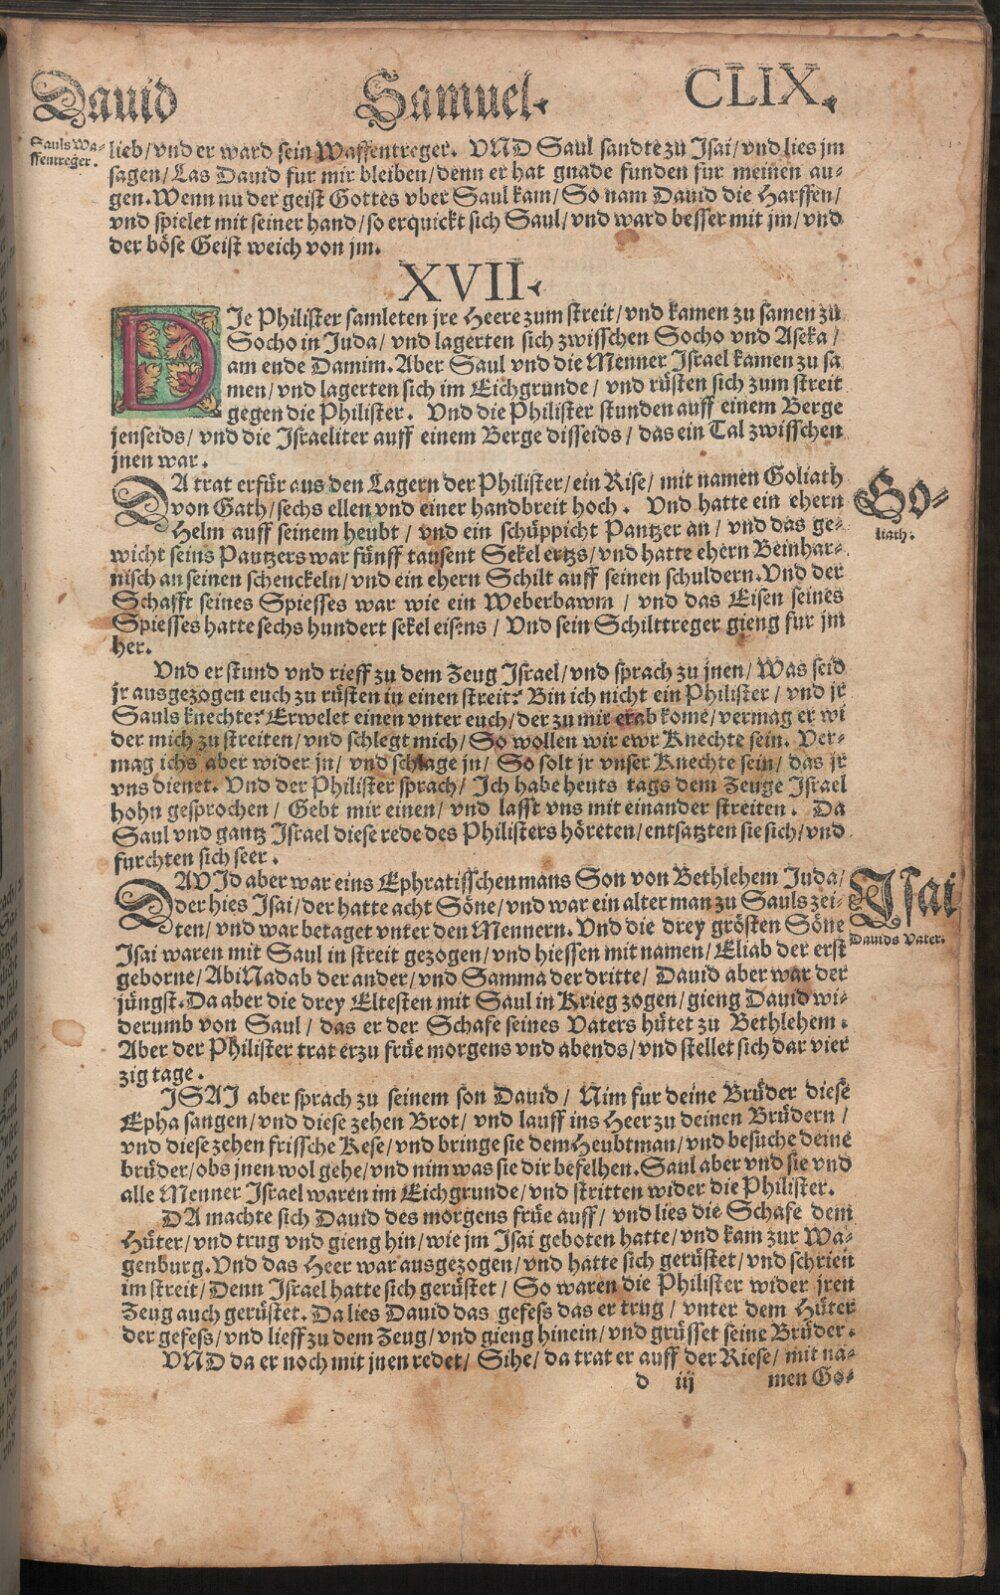 Dauid Samuel. CLIX.
Sauls Wa-
ffentreger.
lieb/vnd er ward sein Waffentreger. VND Saul sandte zu Isai/vnd lies jm
sagen/Las Dauid fur mir bleiben/denn er hat gnade funden fur meinen au-
gen. Wenn nu der geist Gottes vber Saul kam/So nam Dauid die Harffen/
vnd spielet mit seiner hand/so erquickt sich Saul/vnd ward besser mit jm/vnd
der böse Geist weich von jm.
XVII.
DIe Philister samleten jre Heere zum streit/vnd kamen zu samen zu
Socho in Juda/vnd lagerten sich zwisschen Socho vnd Aseka/
am ende Damim. Aber Saul vnd die Menner Israel kamen zu sa
men/vnd lagerten sich im Eichgrunde/vnd rüsten sich zum streit
gegen die Philister. Vnd die Philister stunden auff einem Berge
jenseids/vnd die Israeliter auff einem Berge disseids/das ein Tal zwisschen
jnen war.
DA trat erfür aus den Lagern der Philister/ein Rise/mit namen Goliath
von Gath/sechs ellen vnd einer handbreit hoch. Vnd hatte ein ehern
Helm auff seinem heubt/vnd ein schüppicht Pantzer an/vnd das ge-
wicht seins Pantzers war fünff tausent Sekel ertzs/vnd hatte ehern Beinhar-
nisch an seinen schenckeln/vnd ein ehern Schilt auff seinen schuldern. Vnd der
Schafft seines Spiesses war wie ein Weberbawm/vnd das Eisen seines
Spiesses hatte sechs hundert sekel eisens/Vnd sein Schilttreger gieng fur jm
her.
Go-
liath.
Vnd er stund vnd rieff zu dem Zeug Israel/vnd sprach zu jnen/Was seid
jr ausgezogen euch zu rüsten in einen streit? Bin ich nicht ein Philister/vnd jr
Sauls knechte? Erwelet einen vnter euch/der zu mir erab kome/vermag er wi
der mich zu streiten/vnd schlegt mich/So wollen wir ewr Knechte sein. Ver-
mag ichs aber wider jn/vnd schlage jn/So solt jr vnser Knechte sein/das jr
vns dienet. Vnd der Philister sprach/Ich habe heuts tags dem Zeuge Israel
hohn gesprochen/Gebt mir einen/vnd lasst vns mit einander streiten. Da
Saul vnd gantz Israel diese rede des Philisters höreten/entsatzten sie sich/vnd
furchten sich seer.
DAVJd aber war eins Ephratisschen mans Son von Bethlehem Juda/
der hies Isai/der hatte acht Söne/vnd war ein alter man zu Sauls zei-
ten/vnd war betaget vnter den Mennern. Vnd die drey grösten Söne
Isai waren mit Saul in streit gezogen/vnd hiessen mit namen/Eliab der erst
geborne/AbiNadab der ander/vnd Samma der dritte/Dauid aber war der
jüngst. Da aber die drey Eltesten mit Saul in Krieg zogen/gieng Dauid wi-
derumb von Saul/das er der Schafe seines Vaters hütet zu Bethlehem.
Aber der Philister trat erzu früe morgens vnd abends/vnd stellet sich dar vier
zig tage.
Isai
Dauids Vater.
ISAI aber sprach zu seinem son Dauid/Nim fur deine Brüder diese
Epha sangen/vnd diese zehen Brot/vnd lauff ins Heer zu deinen Brüdern/
vnd diese zehen frissche Kese/vnd bringe sie dem Heubtman/vnd besuche deine
brüder/obs jnen wol gehe/vnd nim was sie dir befelhen. Saul aber vnd sie vnd
alle Menner Israel waren im Eichgrunde/vnd stritten wider die Philister.
DA machte sich Dauid des morgens früe auff/vnd lies die Schafe dem
Hüter/vnd trug vnd gieng hin/wie jm Isai geboten hatte/vnd kam zur Wa-
genburg. Vnd das Heer war ausgezogen/vnd hatte sich gerüstet/vnd schrieit
im streit/Denn Israel hatte sich gerüstet/So waren die Philister wider jren
Zeug auch gerüstet. Da lies Dauid das gefess das er trug/vnter dem Hüter
der gefess/vnd lieff zu dem Zeug/vnd gieng hinein/vnd grüsset seine Brüder.
VND da er noch mit jnen redet/Sihe/da trat er auff der Riese/mit na-
d iij men Go-